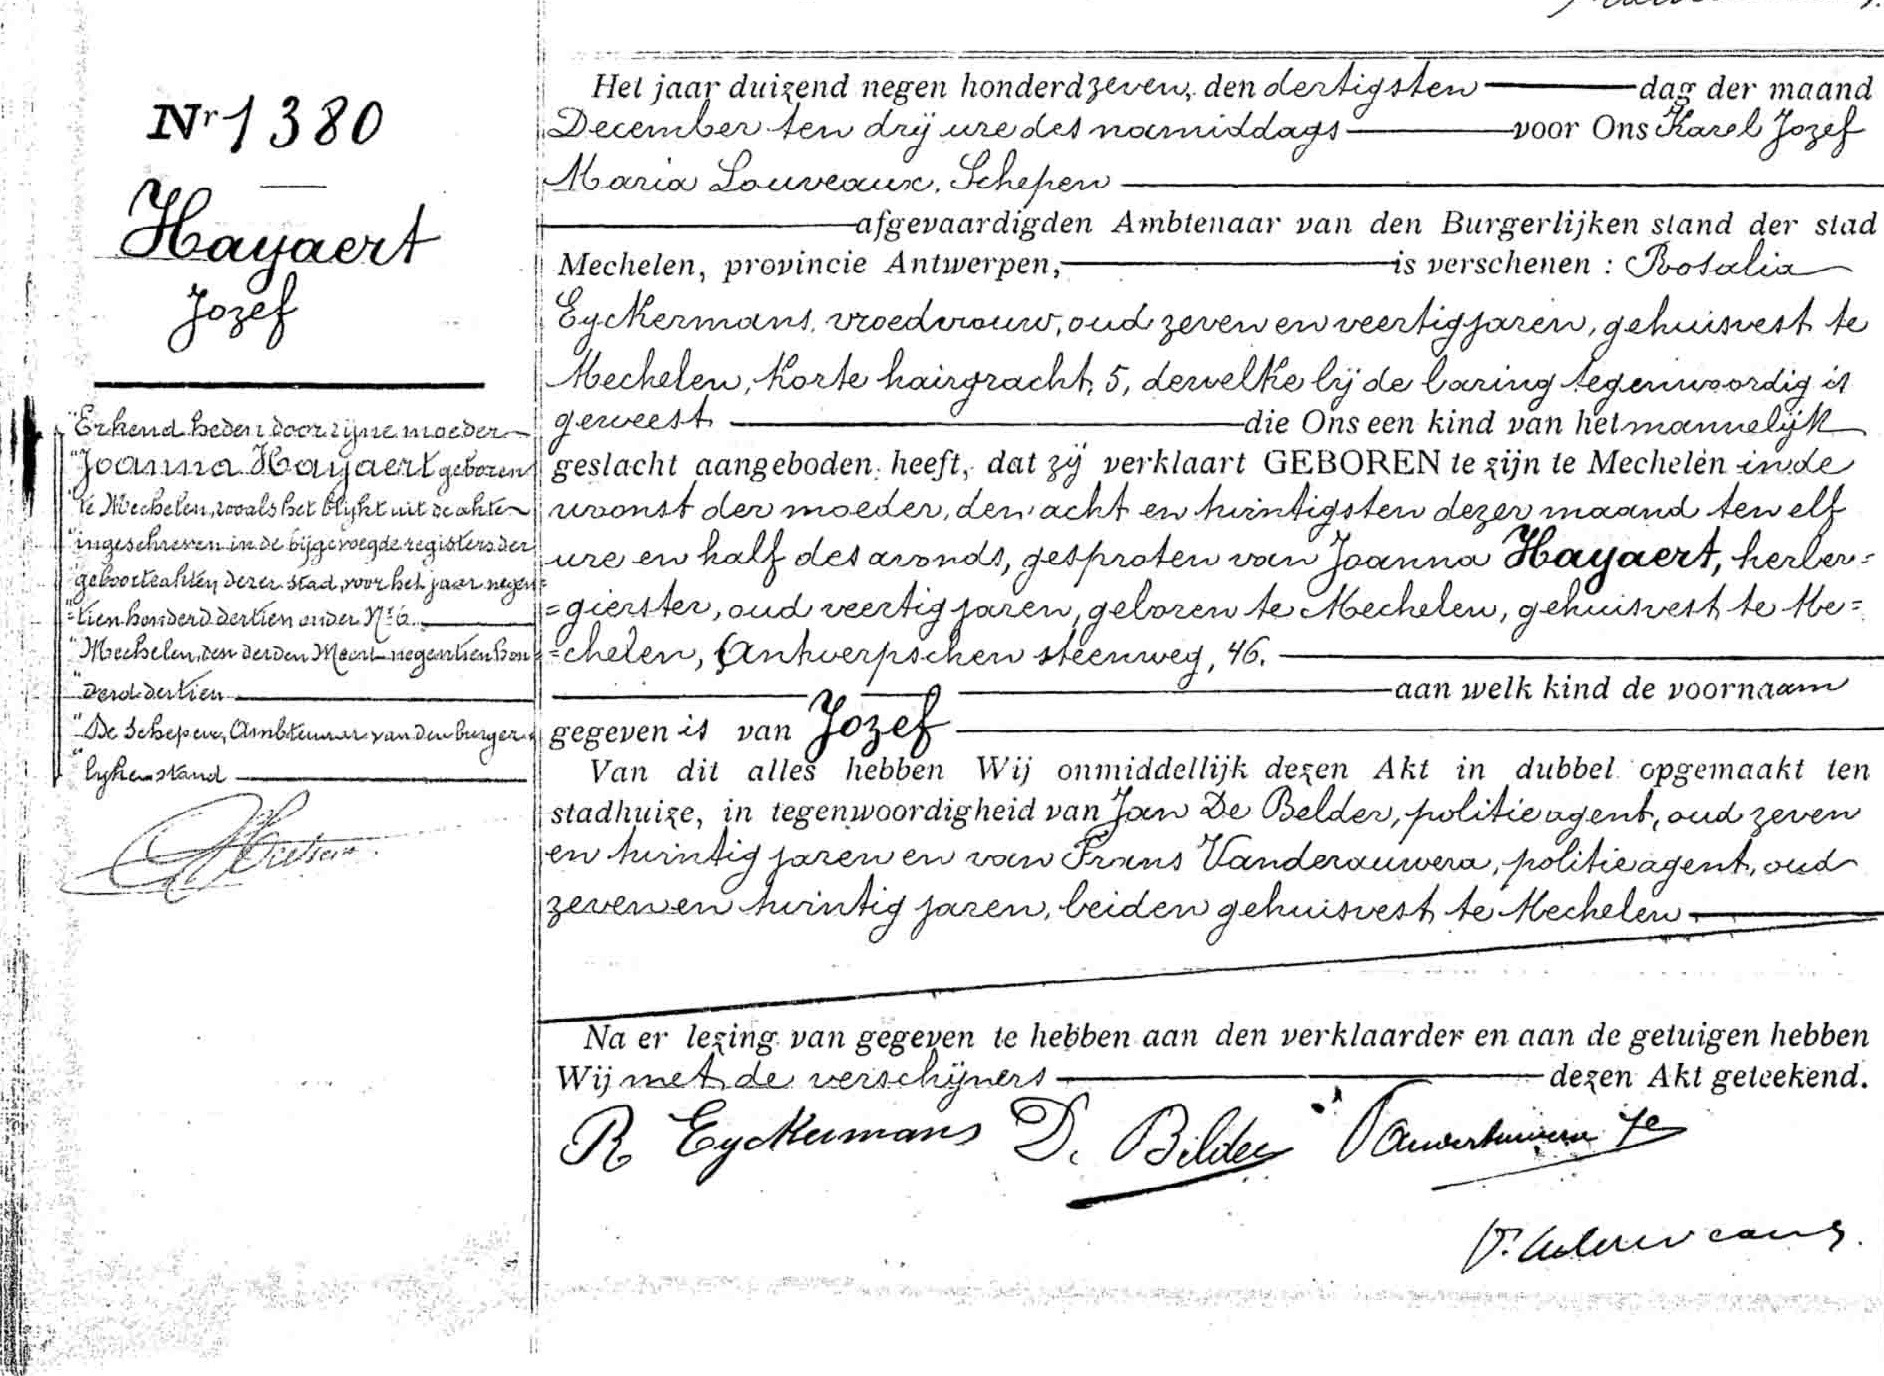 Nr 1380
Hayaert
Jozef
"Erkend heden door zijne moeder
"Joanna Hayaert geboren
"te Mechelen, zooals het blijkt uit de akte
"ingeschreven in de bijgevoegde registers der
"geboorteakten dezer stad, voor het jaar negen=
"=tien honderd dertien onder Nr 6.
"Mechelen, den derden Meert negentien hon=
"derd dertien
"De Schepen, Ambtenaar van den burger=
"lyken stand
Het jaar duizend negen honderd zeven, den dertigsten dag der maand
December ten drij ure des namiddags voor Ons Karel Jozef
Maria Louveaux, Schepen
afgevaardigden Ambtenaar van den Burgerlijken stand der stad
Mechelen, provincie Antwerpen, is verschenen : Rosalia
Eyckermans, vroedvrouw, oud zeven en veertig jaren, gehuisvest te
Mechelen, Korte hairgracht, 5, dewelke bij de baring tegenwoordig is
geweest die Ons een kind van het mannelijk
geslacht aangeboden heeft, dat zij verklaart GEBOREN te zijn te Mechelen in de
woonst der moeder, den acht en twintigsten dezer maand ten elf
ure en half des avonds, gesproten van Joanna Hayaert, herber=
=gierster, oud veertig jaren, geboren te Mechelen, gehuisvest te Me=
=chelen, Antwerpschen steenweg, 46.
aan welk kind de voornaam
gegeven is van Jozef
Van dit alles hebben Wij onmiddellijk dezen Akt in dubbel opgemaakt ten
stadhuize, in tegenwoordigheid van Jan De Belder, politieagent, oud zeven
en twintig jaren en van Frans Vanderauwera, politieagent, oud
zeven en twintig jaren, beiden gehuisvest te Mechelen
Na er lezing van gegeven te hebben aan den verklaarder en aan de getuigen hebben
Wij met de verschijners dezen Akt geteekend.
R Eyckermans De Bilder